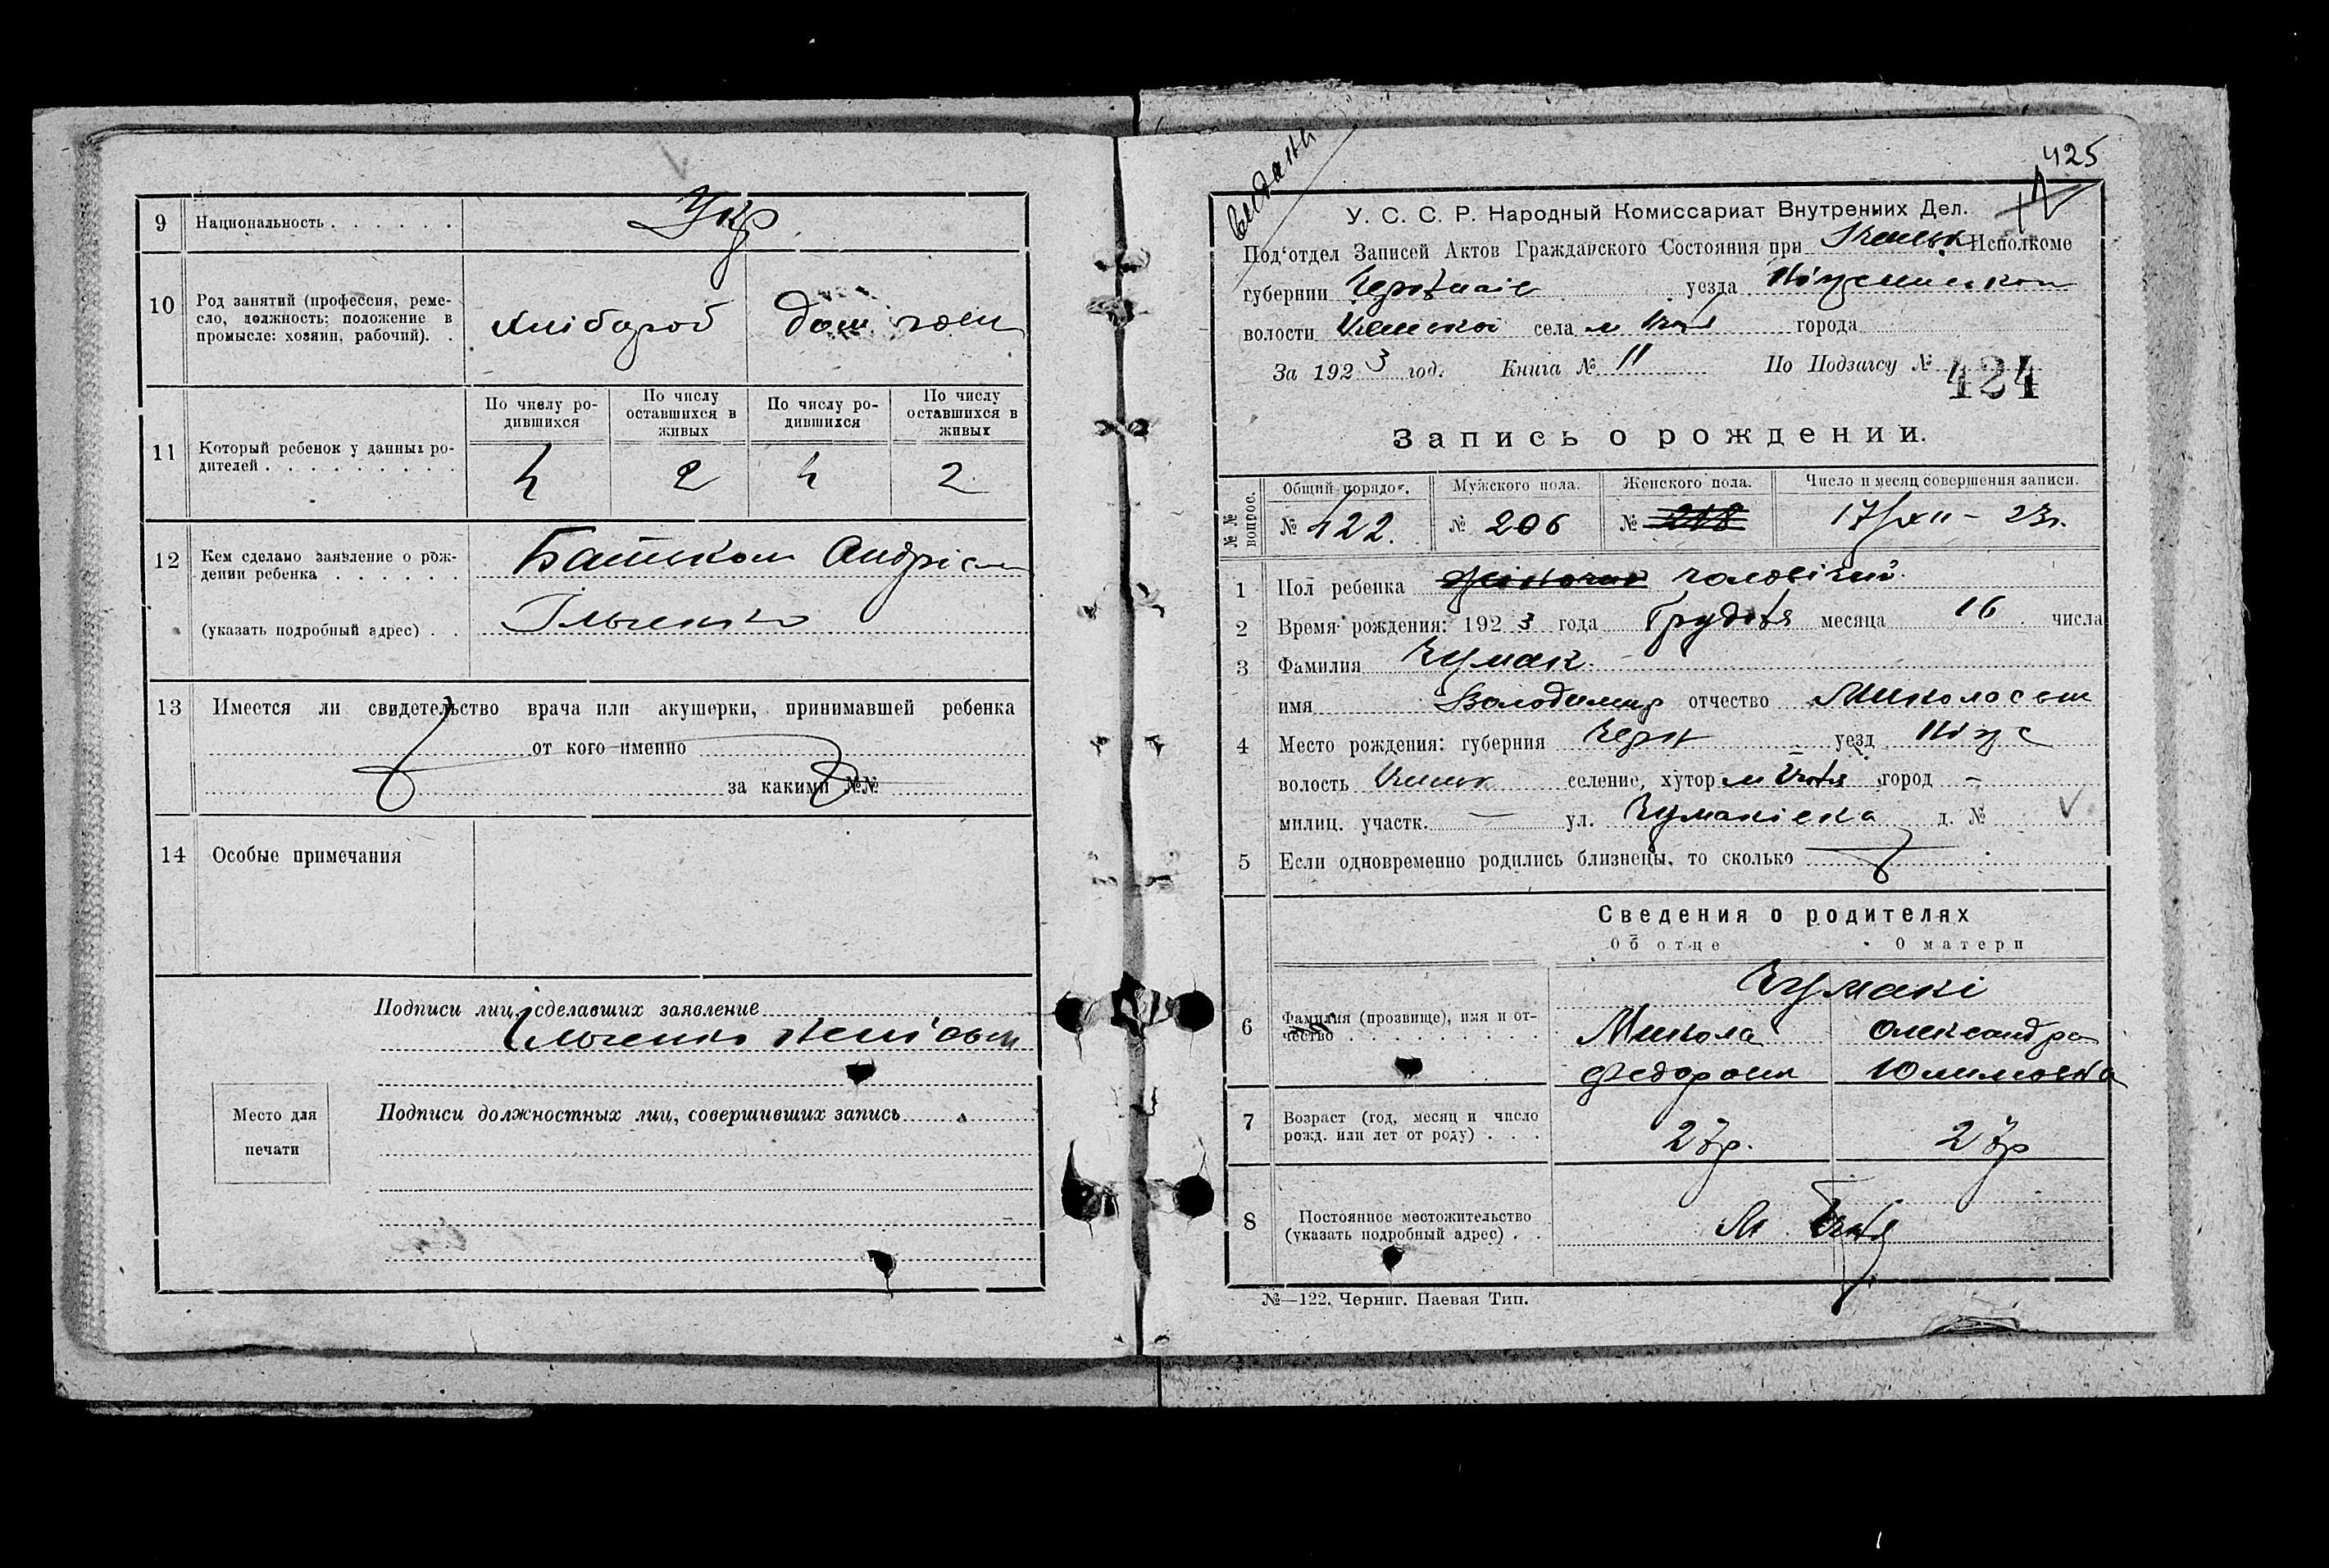 9 Национальность . . . . . . Укр
10 Род занятий (профессия, реме-
сло, должность: положение в
промысле: хозяин, рабочий). .
Хлібороб дом. госп
11 Который ребенок у данных ро-
дителей . . . . . . . . .
По числу ро-
дившихся
По числу
оставшихся в
живых
По числу ро-
дившихся
По числу
оставшихся в
живых
2 2
12 Кем сделано заявление о рож-
дении ребенка . . . . . . Батьком Андрієм
(указать подробный адрес) . . Ільченко
13 Имеется ли свидетельство врача или акушерки, принимавшей ребенка
от кого именно
за какими №№
14 Особые примечания
Подписи лиц, сделавших заявление
Ільченко
Подписи должностных лиц, совершивших запись
Место для
печати
425
У. С. С. Р. Народный Комиссариат Внутренних Дел.
Под'отдел Записей Актов Гражданского Состояния при Ічнськ Исполкоме
губернии уезда
волости Ічнської села м Ічня города
За 1923 год. Книга № 11 По Подзагсу № 424
Запись о рождении.
№№ вопрос.
Общий порядок. Мужского пола. Женского пола. Число и месяц совершения записи.
№ 422. № 206 № 218 17/XII – 23р.
1 Пол ребенка чоловічий.
2 Время рождения: 1923 года Грудня месяца 16 числа
3 Фамилия Чумак.
имя Володимир отчество Миколаєвич
4 Место рождения: губерния Черн уезд Ніжс
волость Ічнськ селение, хутор м Ічня город –
милиц. участк. — ул. Чумаківка д. №
5 Если одновременно родились близнецы, то сколько
Сведения о родителях
Об отце О матери
Чумакі
6 Фамилия (прозвище), имя и от-
чество . . . . . . . . .
Микола Олександра
Федорович
7 Возраст (год, месяц и число
рожд. или лет от роду) . . .
8 Постоянное местожительство
(указать подробный адрес) . .
М Ічня
№—122. Черниг. Паевая Тип.